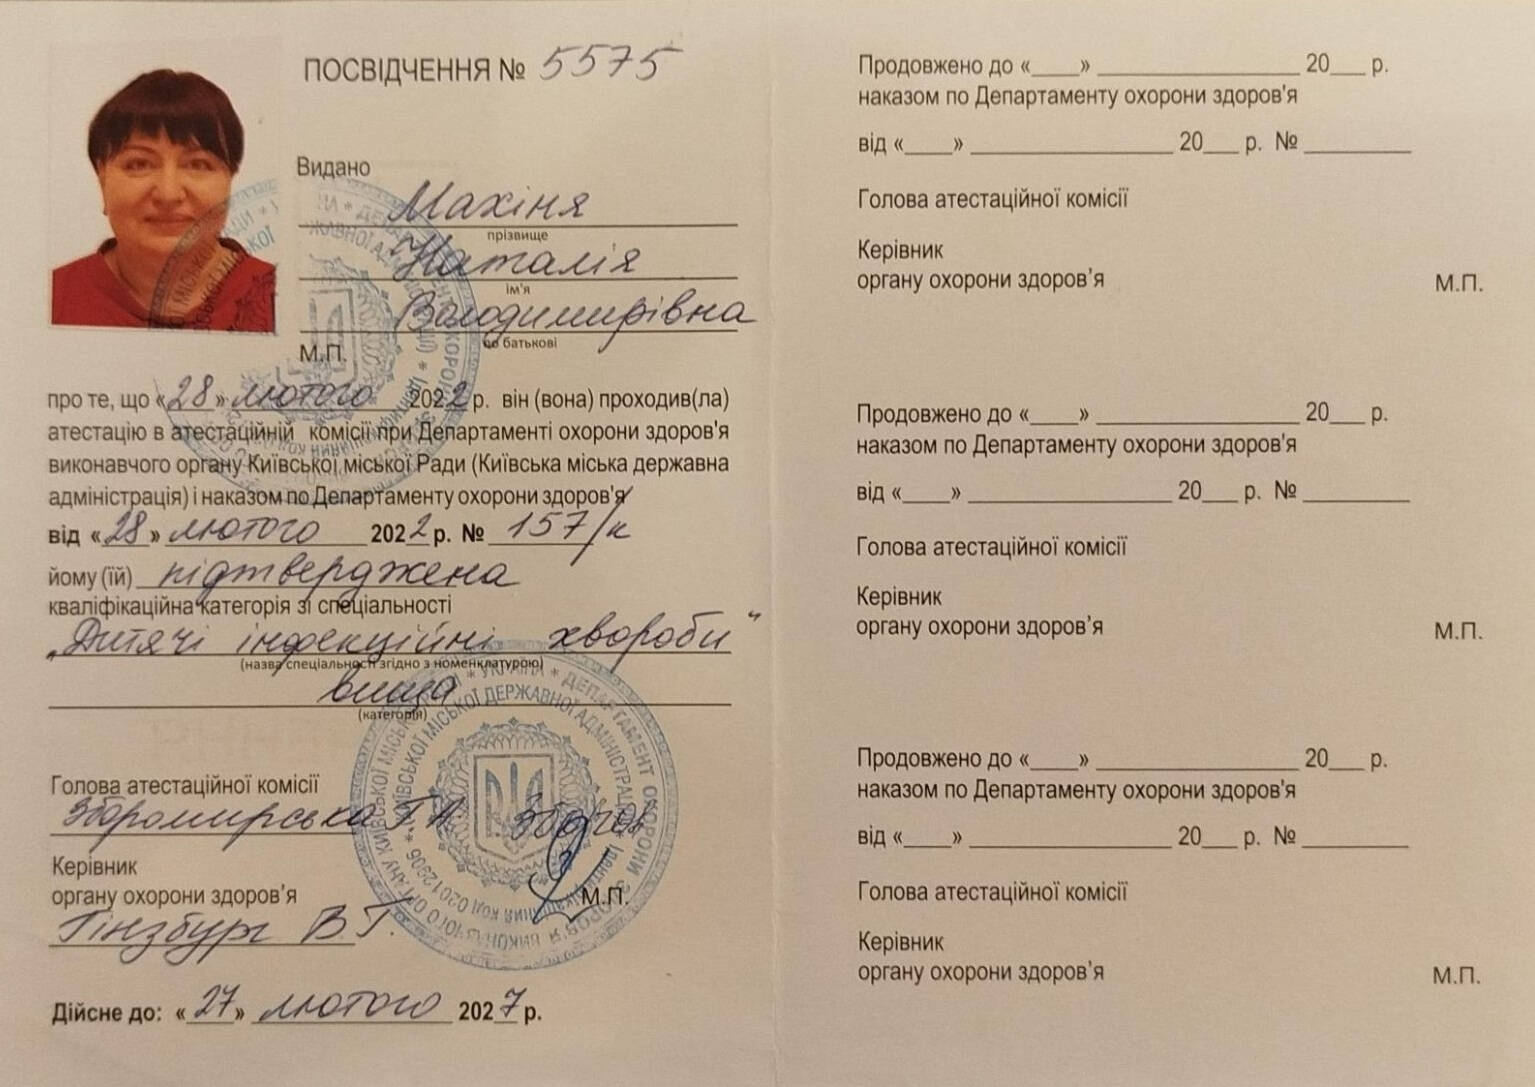 ПОСВІДЧЕННЯ № 5575
Видано
Махіня
прізвище
Наталія
ім'я
Володимирівна
по батькові
М.П.
про те, що «28» лютого 2022 р. він (вона) проходив(ла)
атестацію в атестаційній комісії при Департаменті охорони здоров'я
виконавчого органу Київської міської Ради (Київська міська державна
адміністрація) і наказом по Департаменту охорони здоров'я
від «28» лютого 2022 р. № 157/к
йому (їй) підтверджена
кваліфікаційна категорія зі спеціальності
„Дитячі інфекційні хвороби“
(назва спеціальності згідно з номенклатурою)
вища
(категорія)
Голова атестаційної комісії
Зборомирська Г.А.
Керівник
органу охорони здоров'я
М.П.
Гінзбург В.Г.
Дійсне до: «27» лютого 2027 р.
Продовжено до «____» ________________ 20___ р.
наказом по Департаменту охорони здоров'я
від «____» ________________ 20___ р. № ________
Голова атестаційної комісії
Керівник
органу охорони здоров'я
М.П.
Продовжено до «____» ________________ 20___ р.
наказом по Департаменту охорони здоров'я
від «____» ________________ 20___ р. № ________
Голова атестаційної комісії
Керівник
органу охорони здоров'я
М.П.
Продовжено до «____» ________________ 20___ р.
наказом по Департаменту охорони здоров'я
від «____» ________________ 20___ р. № ________
Голова атестаційної комісії
Керівник
органу охорони здоров'я
М.П.